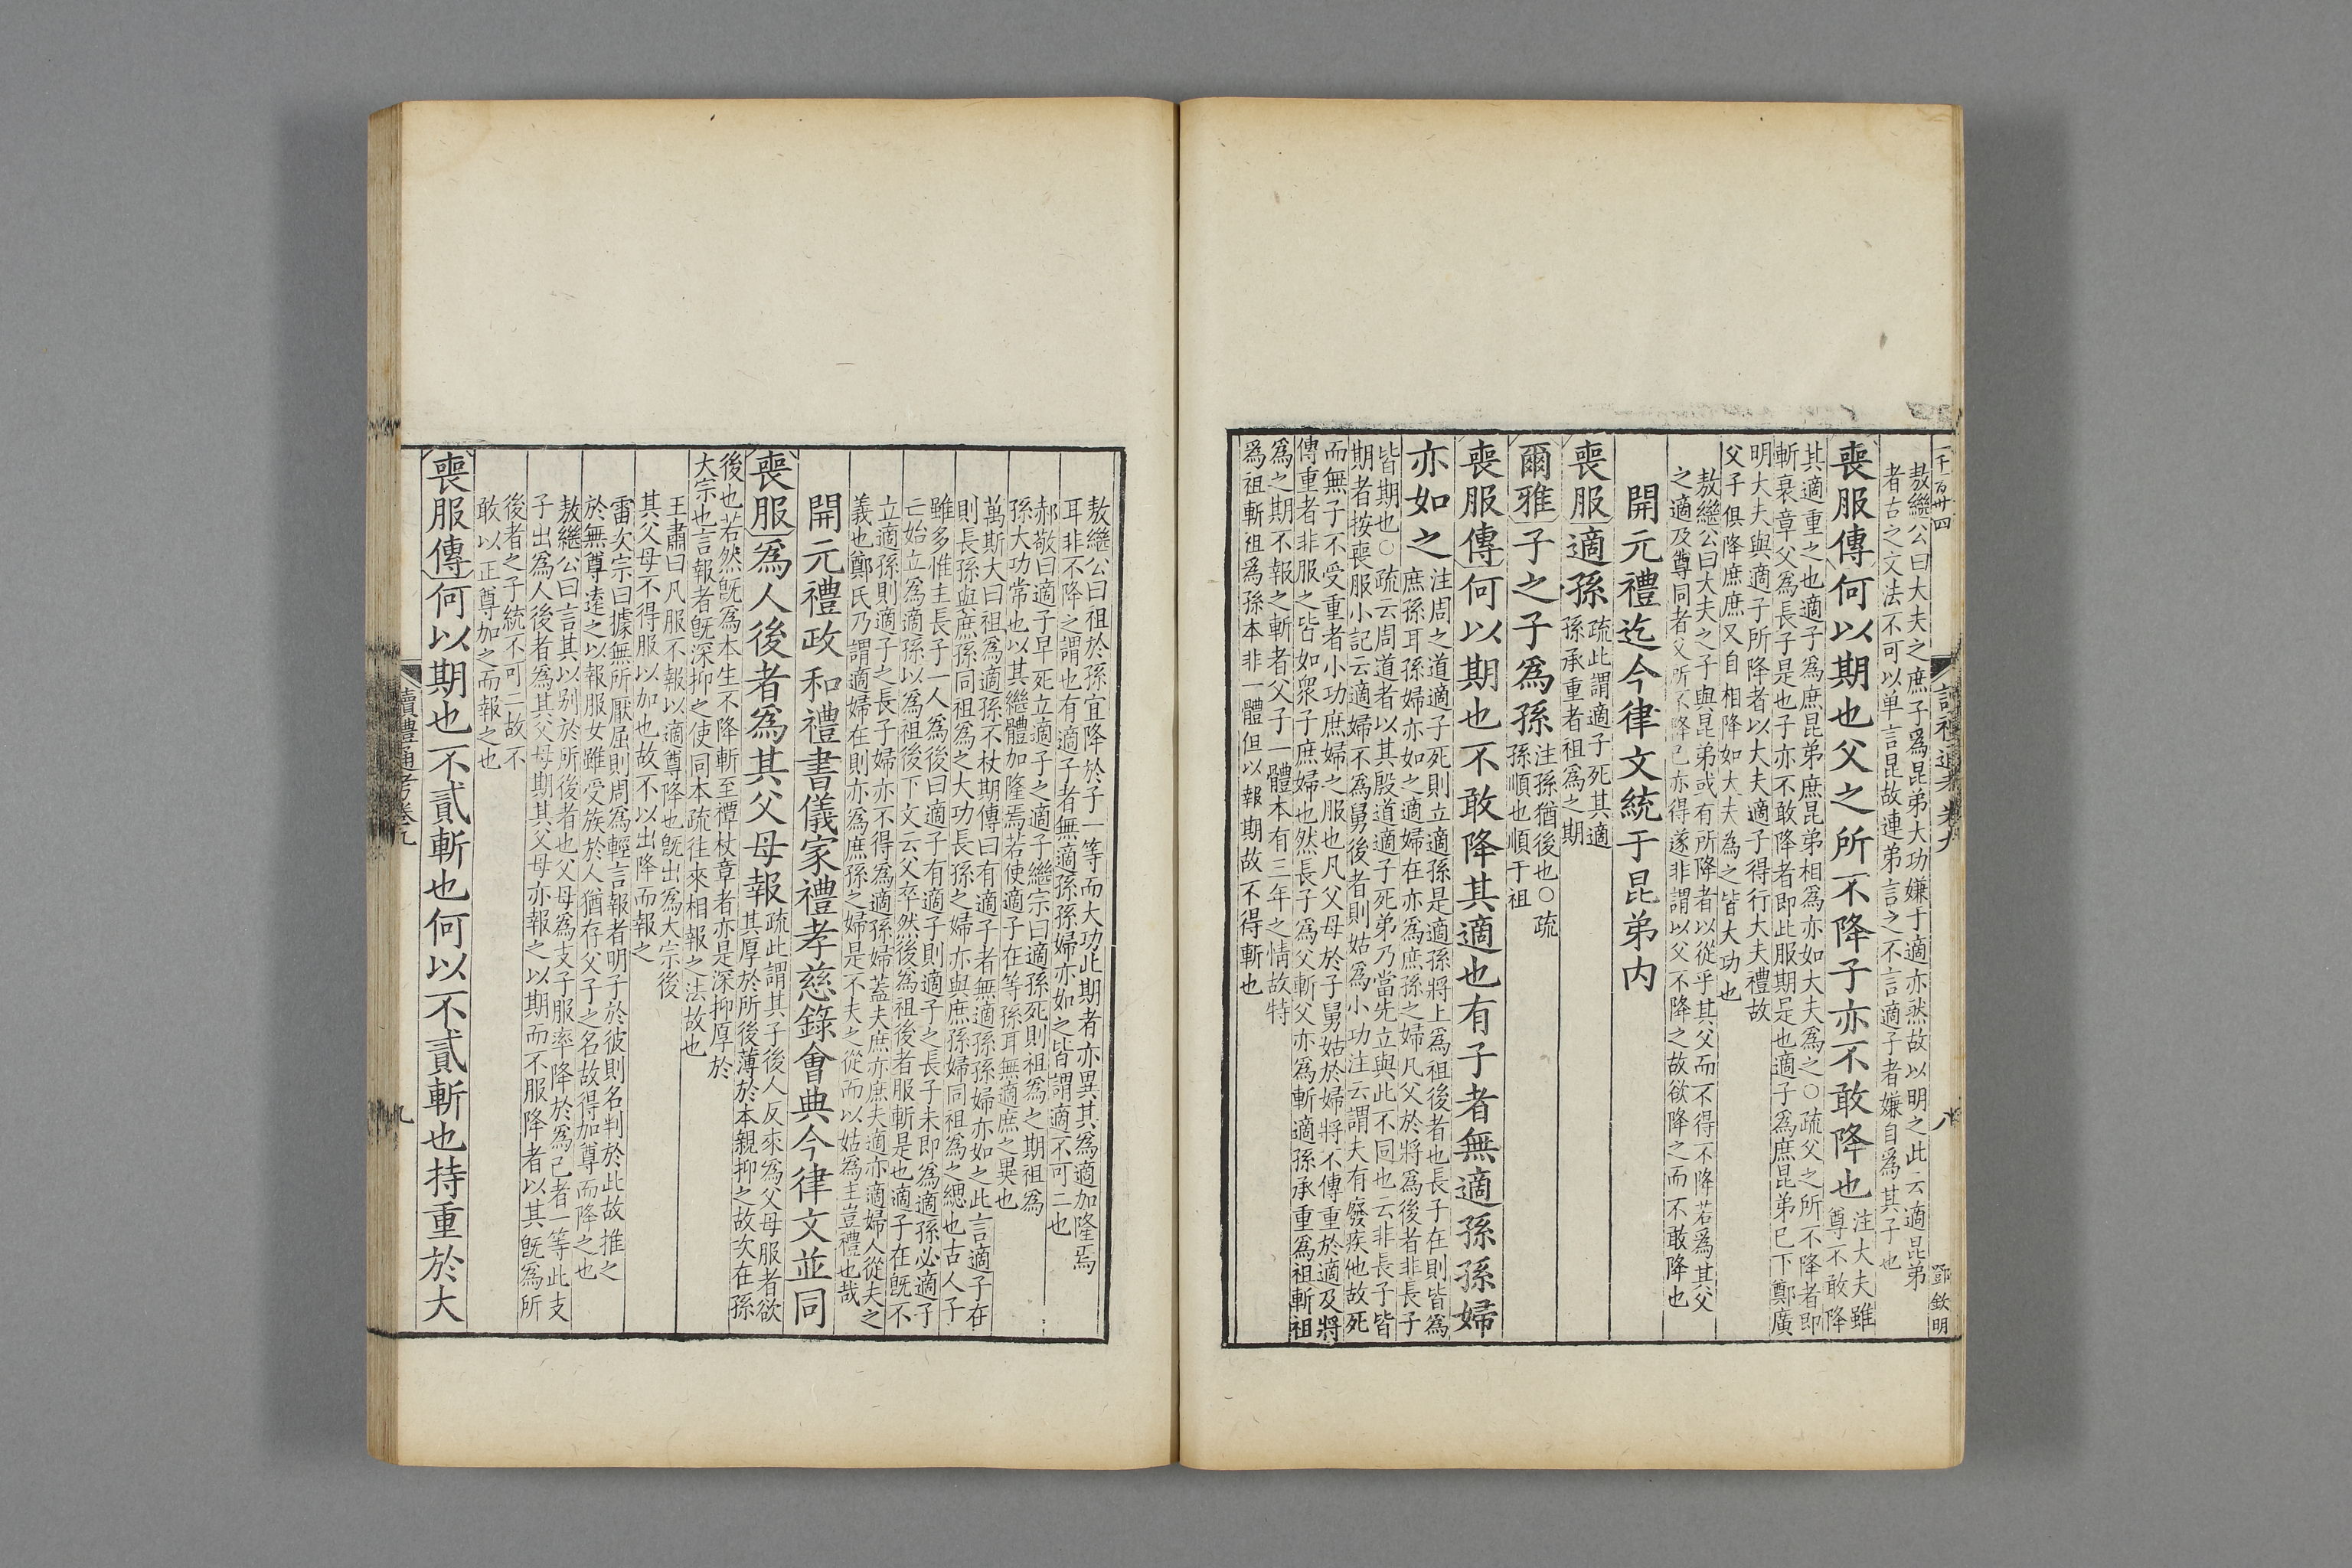 一千百卅四
讀禮通考卷九
八
鄧欽明
敖繼公曰大夫之庶子爲昆弟大功嫌于適亦然故以明之此云適昆弟
者古之文法不可以单言昆故連弟言之不言適子者嫌自爲其子也
喪服傳何以期也父之所不降子亦不敢降也注大夫雖
尊不敢降
其適重之也適子爲庶昆弟庶昆弟相爲亦如大夫爲之○疏父之所不降者即
斬衰章父爲長子是也子亦不敢降者即此服期是也適子爲庶昆弟已下鄭廣
明大夫與適子所降者以大夫適子得行大夫禮故
父子俱降庶庶又自相降如大夫為之皆大功也
敖繼公曰大夫之子與昆弟或有所降者以從乎其父而不得不降若爲其父
之適及尊同者父所不降己亦得遂非謂以父不降之故欲降之而不敢降也
開元禮迄今律文統于昆弟内
喪服適孫疏此謂適子死其適
孫承重者祖為之期
爾雅子之子爲孫注孫猶後也○疏
孫順也順于祖
喪服傳何以期也不敢降其適也有子者無適孫孫婦
亦如之注周之道適子死則立適孫是適孫將上爲祖後者也長子在則皆爲
庶孫耳孫婦亦如之適婦在亦爲庶孫之婦凡父於將爲後者非長子
皆期也○疏云周道者以其殷道適子死弟乃當先立與此不同也云非長子皆
期者按喪服小記云適婦不爲舅後者則姑爲小功注云謂夫有廢疾他故死
而無子不受重者小功庶婦之服也凡父母於子舅姑於婦將不傳重於適及將
傳重者非服之皆如衆子庶婦也然長子爲父斬父亦爲斬適孫承重爲祖斬祖
為之期不報之斬者父子一體本有三年之情故特
爲祖斬祖爲孫本非一體但以報期故不得斬也
敖繼公曰祖於孫宜降於子一等而大功此期者亦異其為適加隆焉
耳非不降之謂也有適子者無適孫孫婦亦如之皆謂適不可二也
郝敬曰適子早死立適子之適子繼宗曰適孫死則祖爲之期祖爲
孫大功常也以其繼體加隆焉若使適子在等孫耳無適庶之異也
萬斯大曰祖為適孫不杖期傳曰有適子者無適孫孫婦亦如之此言適子在
則長孫與庶孫同祖為之大功長孫之婦亦與庶孫婦同祖為之緦也古人子
雖多惟主長子一人爲後曰適子有適子則適子之長子未即爲適孫必適子
亡始立為適孫以爲祖後下文云父卒然後為祖後者服斬是也適子在既不
立適孫則適子之長子婦亦不得為適孫婦蓋夫庶亦庶夫適亦適婦人從夫之
義也鄭氏乃謂適婦在則亦為庶孫之婦是不夫之從而以姑爲主豈禮也哉
開元禮政和禮書儀家禮孝慈錄會典今律文並同
喪服爲人後者爲其父母報疏此謂其子後人反來爲父母服者欲
其厚於所後薄於本親抑之故次在孫
後也若然既爲本生不降斬至禫杖章者亦是深抑厚於
大宗也言報者既深抑之使同本疏往來相報之法故也
王肅曰凡服不報以適尊降也既出爲大宗後
其父母不得服以加也故不以出降而報之
雷次宗曰據無所厭屈則周爲輕言報者明子於彼則名判於此故推之
於無尊逺之以報服女雖受族於人猶存父子之名故得加尊而降之也
敖繼公曰言其以别於所後者也父母爲支子服率降於為己者一等此支
子出爲人後者爲其父母期其父母亦報之以期而不服降者以其既爲所
後者之子統不可二故不
敢以正尊加之而報之也
喪服傳何以期也不貳斬也何以不貳斬也持重於大
讀禮通考卷九
九